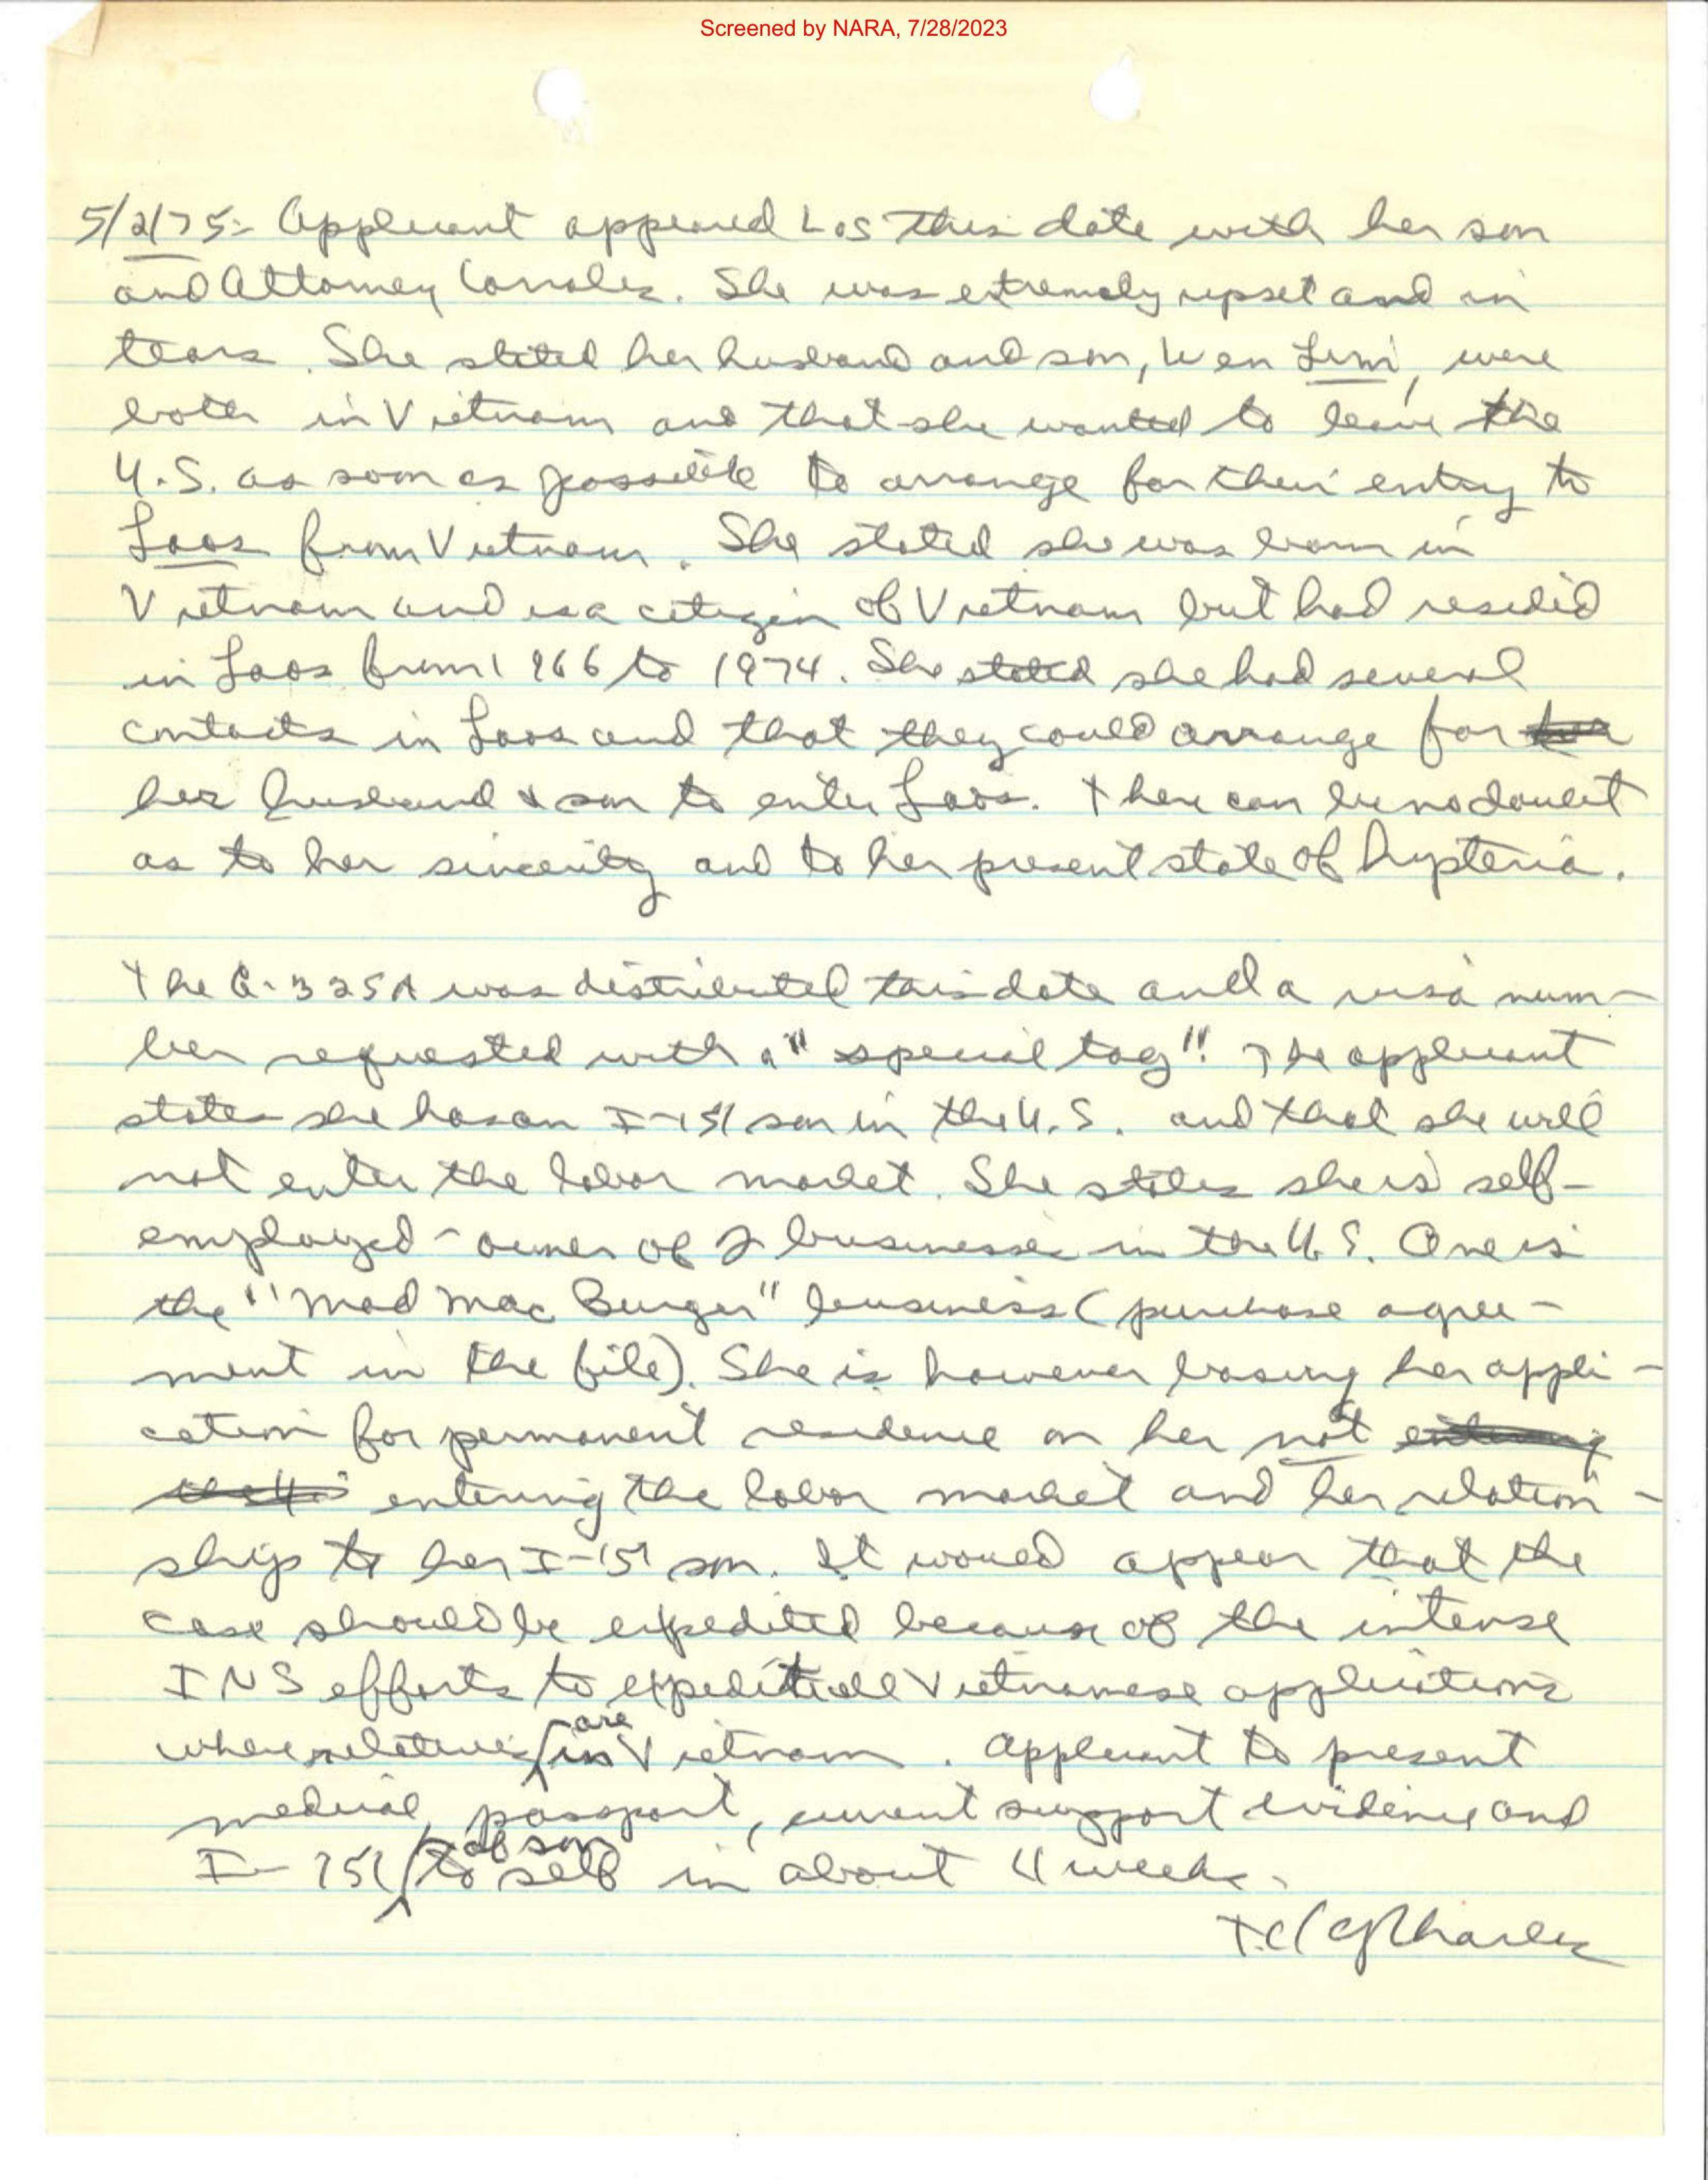 Screened by NARA, 7/28/2023
5/2/75: Applicant appeared Los this date with her son
and Attorney. She was extremely upset and in
tears. She stated her husband and son, Wen Limi, were
both in Vietnam and that she wanted to leave the
U.S. as soon as possible to arrange for their entry to
Laos from Vietnam. She stated she was born in
Vietnam and is a citizen of Vietnam but had resided
in Laos from 1966 to 1974. She stated she had several
contacts in Laos and that they could arrange for
her husband & son to enter Laos. There can be no doubt
as to her sincerity and to her present state of hysteria.
The G-325A was distributed this date and a visa num-
ber requested with a "special tag". The applicant
states she has an I-151 son in the U.S. and that she will
not enter the labor market. She states she is self-
employed - owner of 2 businesses in the U.S. One is
the "Mad Mac Burger" business (purchase agree-
ment in the file). She is however basing her appli-
cation for permanent residence on her not entering
entering the labor market and her relation-
ship to her I-151 son. It would appear that the
case should be expedited because of the intense
INS efforts to expedite all Vietnamese applications
where relatives are in Vietnam. Applicant to present
medical, passport, current support evidence and
I-151 of son to self in about 4 weeks.